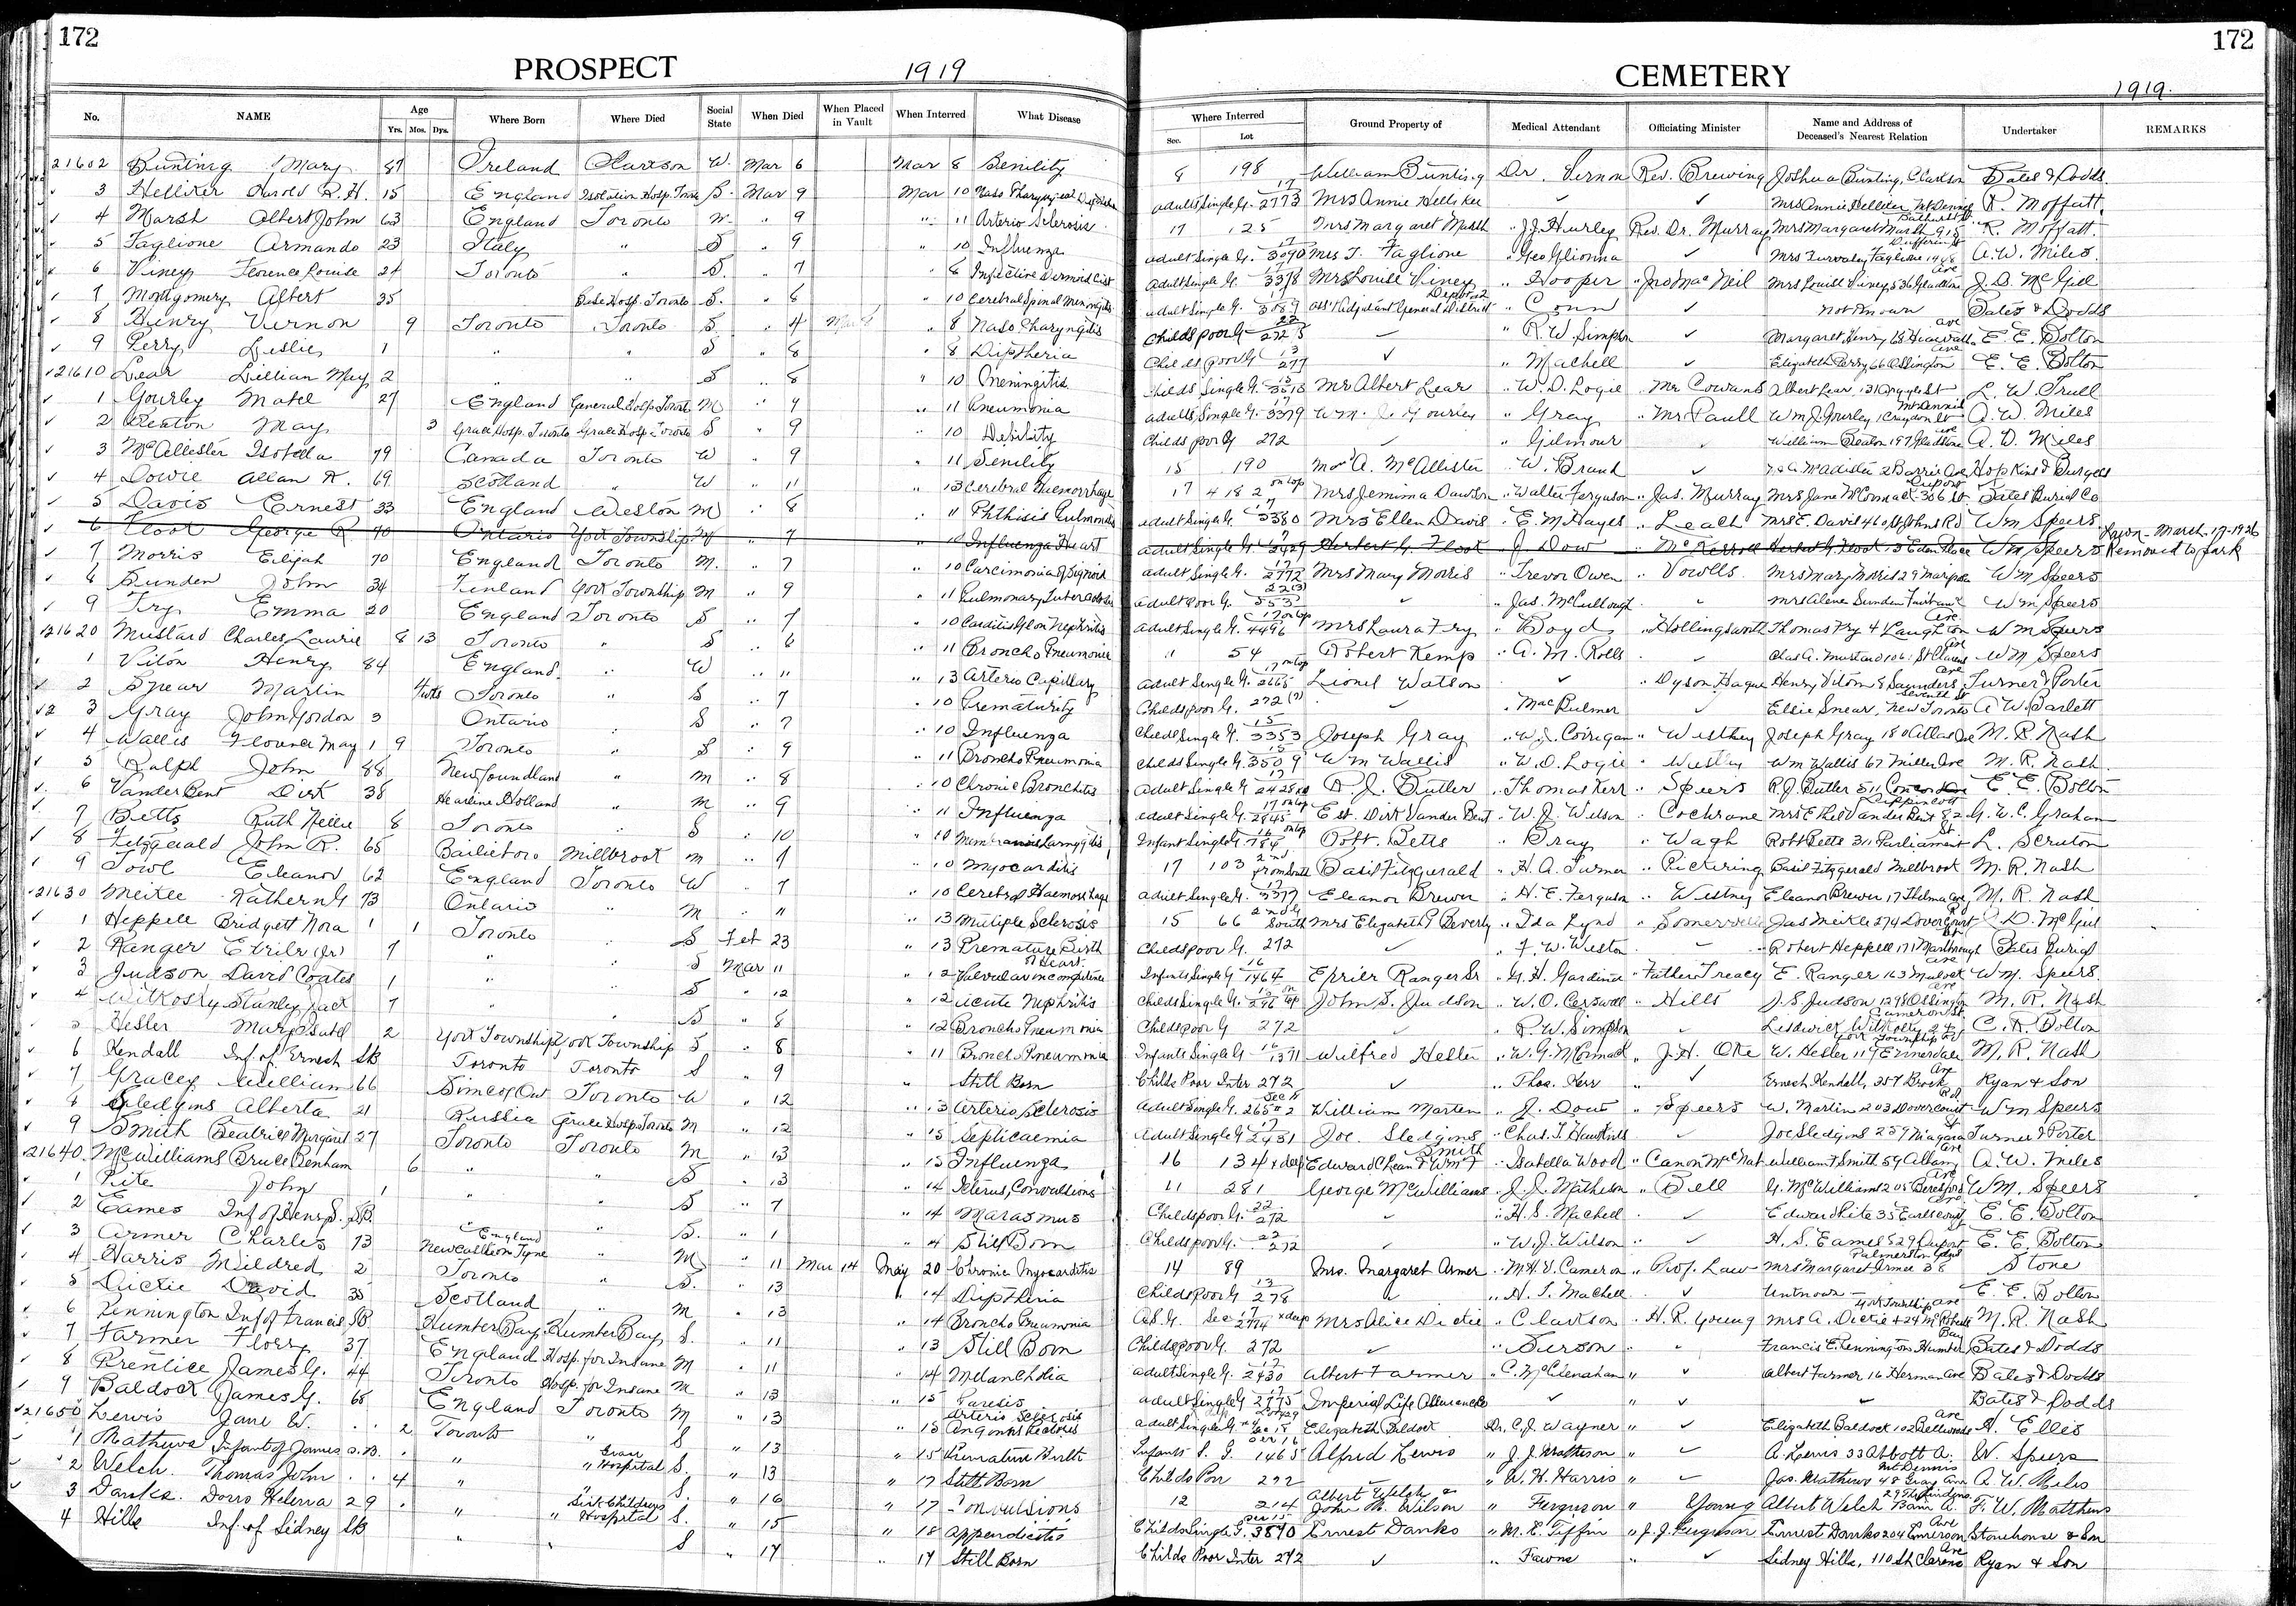 172
PROSPECT 1919
No. NAME Age Yrs. Mos. Dys. Where Born Where Died Social State When Died When Placed in Vault When Interred What Disease
21602 Bunting Mary 87 Ireland Clarkson W. Mar 6 Mar 8 Senility
3 Helliker Harold R. H. 15 England Isolation Hosp. Toronto S. Mar 9 Mar 10
4 Marsh Albert John 63 England Toronto " 9 " 11 Arterio Sclerosis
5 Taglione Armando 23 Italy " S " 9 " 10 Influenza
6 Viney Florence Louise 24 Toronto " S. " 7 " 8 Infective Dermoid Cist
7 Montgomery Albert 35 Base Hosp. Toronto S. " 8 " 10 Cerebral Spinal Meningitis
8 Henry Vernon 9 Toronto Toronto S " 4 Mar " 8 Naso Pharyngitis
9 Perry Leslie 1 " " S " 8 " 8 Diptheria
21610 Lear Lillian May 2 " " S " 8 " 10 Meningitis
1 Gourley Mabel 27 England General Hosp Toronto M " 9 " 11 Pneumonia
2 May 3 Grace Hosp. Toronto Grace Hosp Toronto S " 9 " 10 Debility
3 McAllister Isabella 79 Canada Toronto W " 9 " 11 Senility
4 Dowie Allan R. 69 Scotland " W " 11 " 13 Cerebral Haemorrhage
5 Davis Ernest 33 England Weston M " 8 " 11 Phthisis Pulmonalis
6 Floot George R 70 Ontario York Township " 7 " 10 Influenza Heart
7 Morris Elijah 70 England Toronto M. " 7 " 10 Carcimonia of Sigmoid
8 Sunden John 34 Finland York Township M " 9 " 11 Pulmonary Tuberculosis
9 Fry Emma 20 England Toronto S " 7 " 10
21620 Mustard Charles Laurie 8 13 Toronto " S " 6 " 11 Broncho Pneumonia
1 Viton Henry 84 England " W " 11 " 13 Arterio Capillary
2 Spear Martin Toronto " S " 7 " 10 Prematurity
3 Gray John Gordon 3 Ontario " S " 7 " 10 Influenza
4 Wallis Florence May 1 9 Toronto " S " 9 " 11 Broncho Pneumonia
5 Ralph John 88 Newfoundland " M " 8 " 10 Chronic Bronchitis
6 VanderBent Dirk 38 Holland " M " 9 " 11 Influenza
7 Betts Ruth Nellie 8 Toronto " S " 10 " 10 Membranous Laryngitis
8 Fitzgerald John R. 65 Bailieboro Millbrook M " 7 " 10 Myocarditis
9 Towl Eleanor 62 England Toronto W " 7 " 10 Cerebral Haemorrhage
21630 Meikle 73 Ontario " M " 11 " 13 Multiple Sclerosis
1 Heppell Bridgett Nora 1 1 Toronto " S Feb 23 " 13 Premature Birth
2 Ranger (Jr) 7 " " S Mar 11 " 12 of Heart
3 Judson David Coates 1 " " S " 12 " 12 Acute Nephritis
4 Witkosky Stanley Jack 7 " " S " 8 " 12 Broncho Pneumonia
5 Hesler 2 York Township York Township S " 8 " 11 Broncho Pneumonia
6 Kendall Inf. of Ernest SB Toronto Toronto S " 9 " Still Born
7 Gracey William 66 Simcoe Ont Toronto W " 12 " 13 Arterio Sclerosis
8 Sledgins Alberta 21 Russia Grace Hosp. Toronto M " 12 " 15 Septicaemia
9 Smith Beatrice Margaret 27 Toronto Toronto M " 13 " 15 Influenza
21640 McWilliams Bruce Benham 6 " " S " 13 " 14 Icterus, Convulsions
1 Kite John 1 " " S " 7 " 14 Marasmus
2 Eames Inf of Henry S. SB. " " S. " 1 " 4 Still Born
3 Armer Charles 73 England Newcastle on Tyne " M " 11 Mar 14 May 20 Chronic Myocarditis
4 Harris Mildred 2 Toronto " S. " 13 " 14 Diptheria
5 Dickie David 35 Scotland " M " 13 " 14 Broncho Pneumonia
6 Kennington Inf of Francis SB Humber Bay Humber Bay S. " 11 " 13 Still Born
7 Farmer Florry 37 England Hosp. for Insane M " 11 " 14 Melancholia
8 Prentice James G. 44 Toronto Hosp. for Insane M " 13 " 15 Paresis
9 Baldock James G. 68 England Toronto M " 13 " 15 Arterio Sclerosis
21650 Lewis Jane W. 2 Toronto " S " 13 " 15 Premature Birth
1 Mathews Infant of James S.B. " Grace Hospital S. " 13 " 17 Still Born
2 Welch Thomas John 4 " " S. " 16 " 17 Convulsions
3 Danks Doris Helena 2 9 " Sick Childrens Hospital S. " 15 " 18 Appendicitis
4 Hills Inf. of Sidney SB " " S " 17 " 17 Still Born
172
CEMETERY 1919.
Where Interred Sec. Lot Ground Property of Medical Attendant Officiating Minister Name and Address of Deceased's Nearest Relation Undertaker REMARKS
8 198 William Bunting Dr. Vernon Rev. Brewing Joshua Bunting, Clarkson Bates & Dodds
Adult Single G. 17 2773 Mrs Annie Helliker Mrs Annie Helliker Mt Dennis R. Moffatt.
17 125 Mrs Margaret Marsh " J.J. Hurley Rev. Dr. Murray Mrs Margaret Marsh 915 Bathurst St R. Moffatt.
Adult Single G. 17 3090 Mrs T. Taglione " Geo Glionna A.W. Miles
Adult Single G. 17 3378 Mrs Louise Viney " Hooper " Jno MacNeil Mrs Louise Viney 536 Gladstone Ave J.D. McGill
Adult Single G. 17 3089 Ass't Adjutant General District Depot 2 " Conn Not Known Bates & Dodds
Childs poor G 22 272 " R.W. Simpson Margaret Henry 68 Hiawatha Ave E. E. Bolton
Childs poor G 13 277 " Machell Elizabeth Perry 66 Ossington Ave E. E. Bolton
Childs Single G. 15 3510 Mr Albert Lear " W. D. Logie Mr Cowans Albert Lear 131 Argyle St L. W. Trull
Adults Single G. 17 3379 Wm. J. Gourley " Gray " Mr Paull Wm J. Gourley 1 Craydon St Mt Dennis A. W. Miles
Childs poor G 272 " Gilmour William 197 Gladstone Ave A. W. Miles
15 190 A. McAllister " W. Brand Hopkins & Burgess
17 418 2 on top Mrs Jemima Dawson " Walter Ferguson " Jas. Murray Mrs Jane McCormack 306 Dupont St Bates Burial Co
Adult Single G. 17 3380 Mrs Ellen Davis " E. M. Hayes " Leach Mrs E. Davis 460 St Johns Rd Wm Speers
Adult Single G. 3429 Herbert G. Floot " J. Dow Herbert G. Floot 13 Eden Place Wm Speers Removed to Park Lawn - March-17-1926
Adult Single G. 17 2772 Mrs Mary Morris " Trevor Owen " Vowells Mrs Mary Morris 29 Mariposa Wm Speers
Adult poor G. 553 " Jas. McCullough Mrs Sunden Fairbank Wm Speers
Adult Single G. 17 on top 4496 Mrs Laura Fry " Boyd " Hollingsworth Thomas Fry 4 Laughton Ave Wm Speers
11 54 Robert Kemp " A. M. Rolls Chas A. Mustard 106 St Clarens Ave Wm Speers
Adult Single G. 17 on top 2665 Lionel Watson " Dyson Hague Henry Viton 8 Saunders Ave Turner & Porter
Childs poor G. 272 (7) " MacBulmer Elsie Spear, Seventh St New Toronto A W. Barlett
Child Single G. 15 3353 Joseph Gray " W.J. Corrigan " Westney Joseph Gray 180 Ave M. R. Nash
Childs Single G. 15 3509 Wm Wallis " W. D. Logie " Wm Wallis 67 Miller Ave M. R. Nash
Adult Single G 17 2428 R. J. Butler " Thomas Kerr " Speers R.J. Butler 511 Concord Ave E. E. Bolton
Adult Single G. 17 on top 2845 Est. Dirk Vander Bent " W. J. Wilson " Cochrane Mrs Ethel Vander Bent 82 Lippincott G. W. C. Graham
Infant Single G 16 on top 784 Robt. Betts " Bray " Wagh Robt Betts 311 Parliament St L. Scruton
17 103 2nd from South Basil Fitzgerald " H. A. Turner " Pickering Basil Fitzgerald Millbrook M. R. Nash
Adult Single G. 17 3377 Eleanor Brewer " H. E. Ferguson " Westney Eleanor Brewer 17 Thelma Ave M. R. Nash
15 66 South Mrs Elizabeth Beverly " Ida Lynd " Somerville Jas Meikle 574 Dovercourt Rd J. D. McGill
Childs poor G. 272 " F. W. Weston Robert Heppell 171 Marlborough Ave Bates Burial
Infants Single G 16 1464 Ranger Sr " G. H. Gardiner " Father Treacy E. Ranger 163 Mulock Ave Wm. Speers
Childs Single G. on top 296 John S. Judson " W. O. Carswell " Hills J. S Judson 1298 Ossington Ave M. R. Nash
Childs poor G 272 " R. W. Simpson Cameron St. C. R. Bolton
Infants Single G 16 1371 Wilfred Hesler " W. G. McCormack " J. H. Oke W. Hesler 119 Ennerdale Rd York Township M. R. Nash
Childs Poor Inter 272 " Thos. Kerr " Ernest Kendall, 357 Brock Ave Ryan & Son
Adult Single G. Sec 17 265 # 2 William Marten " J. Dow " Speers W. Martin 203 Dovercourt Rd Wm Speers
Adult Single G 17 2431 Joe. Sledgins " Chas. T. Hawkins Joe Sledgins 257 Niagara St Turner & Porter
16 134 x deep Edward C Lean & Wm F Smith " Isabella Wood " Canon McNab William F Smith 59 Albany Ave A. W. Miles
11 281 George McWilliams " J. J. Matheson " Bell G. McWilliams 205 Beresford Ave Wm. Speers
Childs poor G. 22 272 " H. S. Machell Edward Kite 35 Earlscourt Ave E. E. Bolton
Childs poor G. 22 272 " W. J. Wilson H. S. Eames 529 Dupont E. E. Bolton
14 89 Mrs. Margaret Armer " M.H.V. Cameron " Prof. Law Mrs Margaret Armer 38 Palmerston Gdns Stone
Childs poor G 13 278 " H. S. Machell Unknown E. E. Bolton
A.S.G. Sec 17 2774 x deep Mrs Alice Dickie " Clarkson " H. R. Young Mrs A. Dickie York Township M. R. Nash
Childs poor G. 272 Francis E. Kennington Humber Bay Bates & Dodds
Adult Single G. 17 2430 Albert Farmer " C. McClenahan " Albert Farmer 16 Herman Ave Bates & Dodds
Adult Single G 17 2775 Imperial Life Assurance Co Bates & Dodds
Adult Single G. Elizabeth Baldock Dr. C. J. Wagner " Elizabeth Baldock 102 Bellwoods Ave A. Ellis
Infants S. G. Sec 16 1465 Alfred Lewis " J. J. Matheson " A. Lewis 33 Abbott A. W. Speers
Childs Poor 272 " W. H. Harris " Jas. Mathews 48 Gray Ave Mt Dennis A. W. Miles
12 214 Albert Welch & John M. Wilson " Ferguson " Young Albert Welch F. W. Matthews
Childs Single G. Sec 15 3510 Ernest Danks " M. E. Tiffin " J. J. Ferguson Ernest Danks 204 Emerson Ave Stonehouse & Son
Childs Poor Inter 272 " Fawns " Sidney Hills, 110 St Clarens Ave Ryan & Son